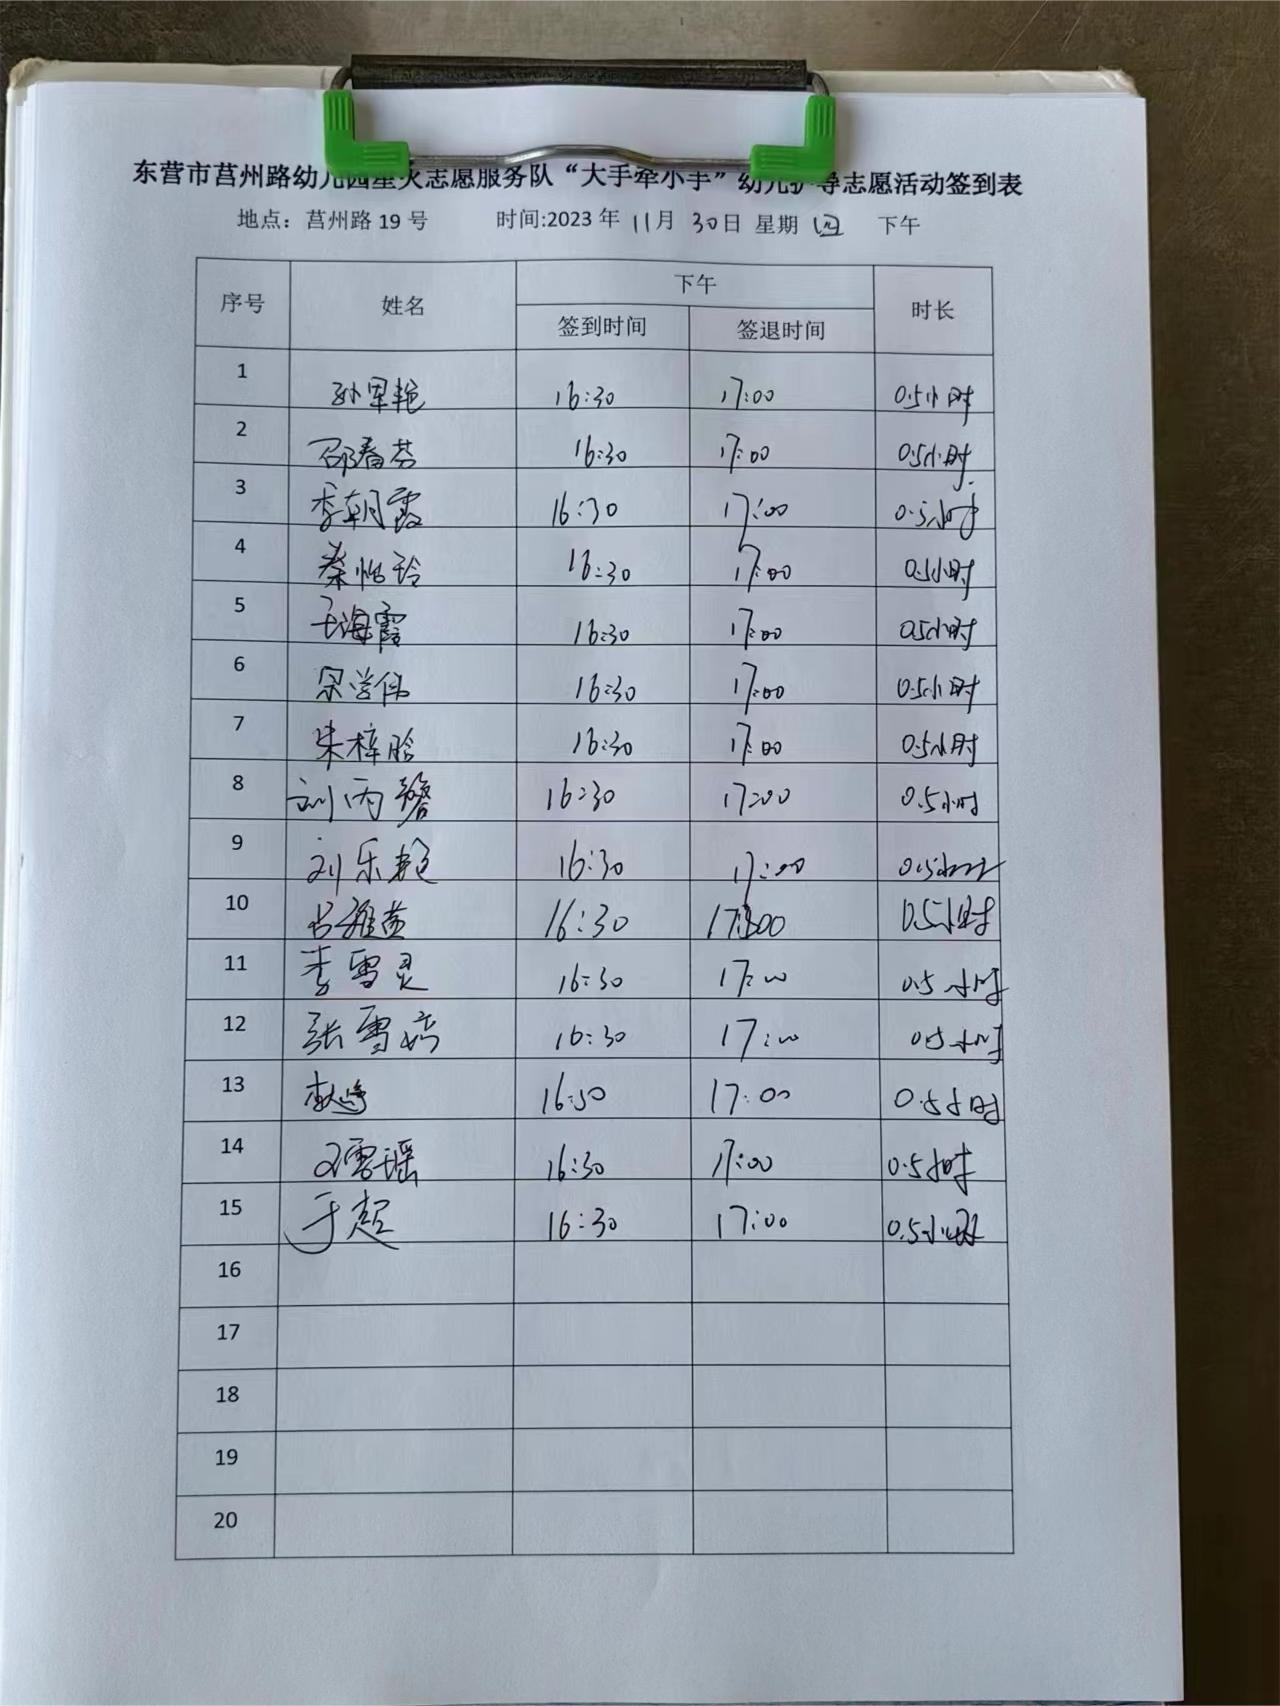 东营市莒州路幼儿园星火志愿服务队“大手牵小手”幼儿护导志愿活动签到表
地点：莒州路 19 号 时间:2023 年 11月 30日 星期 四 下午
序号 姓名 下午 时长
签到时间 签退时间
1 孙军艳 16:30 17:00 0.5小时
2 邵春芬 16:30 17:00 0.5小时
3 李朝霞 16:30 17:00 0.5小时
4 秦怡玲 16:30 17:00 0.5小时
5 于海霞 16:30 17:00 0.5小时
6 宋学伟 16:30 17:00 0.5小时
7 朱梓晗 16:30 17:00 0.5小时
8 刘丙 16:30 17:00 0.5小时
9 刘乐艳 16:30 17:00 0.5小时
10 16:30 17:00 0.5小时
11 李雪灵 16:30 17:00 0.5小时
12 张雪婷 16:30 17:00 0.5小时
13 16:30 17:00 0.5小时
14 雪瑶 16:30 17:00 0.5小时
15 于超 16:30 17:00 0.5小时
16
17
18
19
20